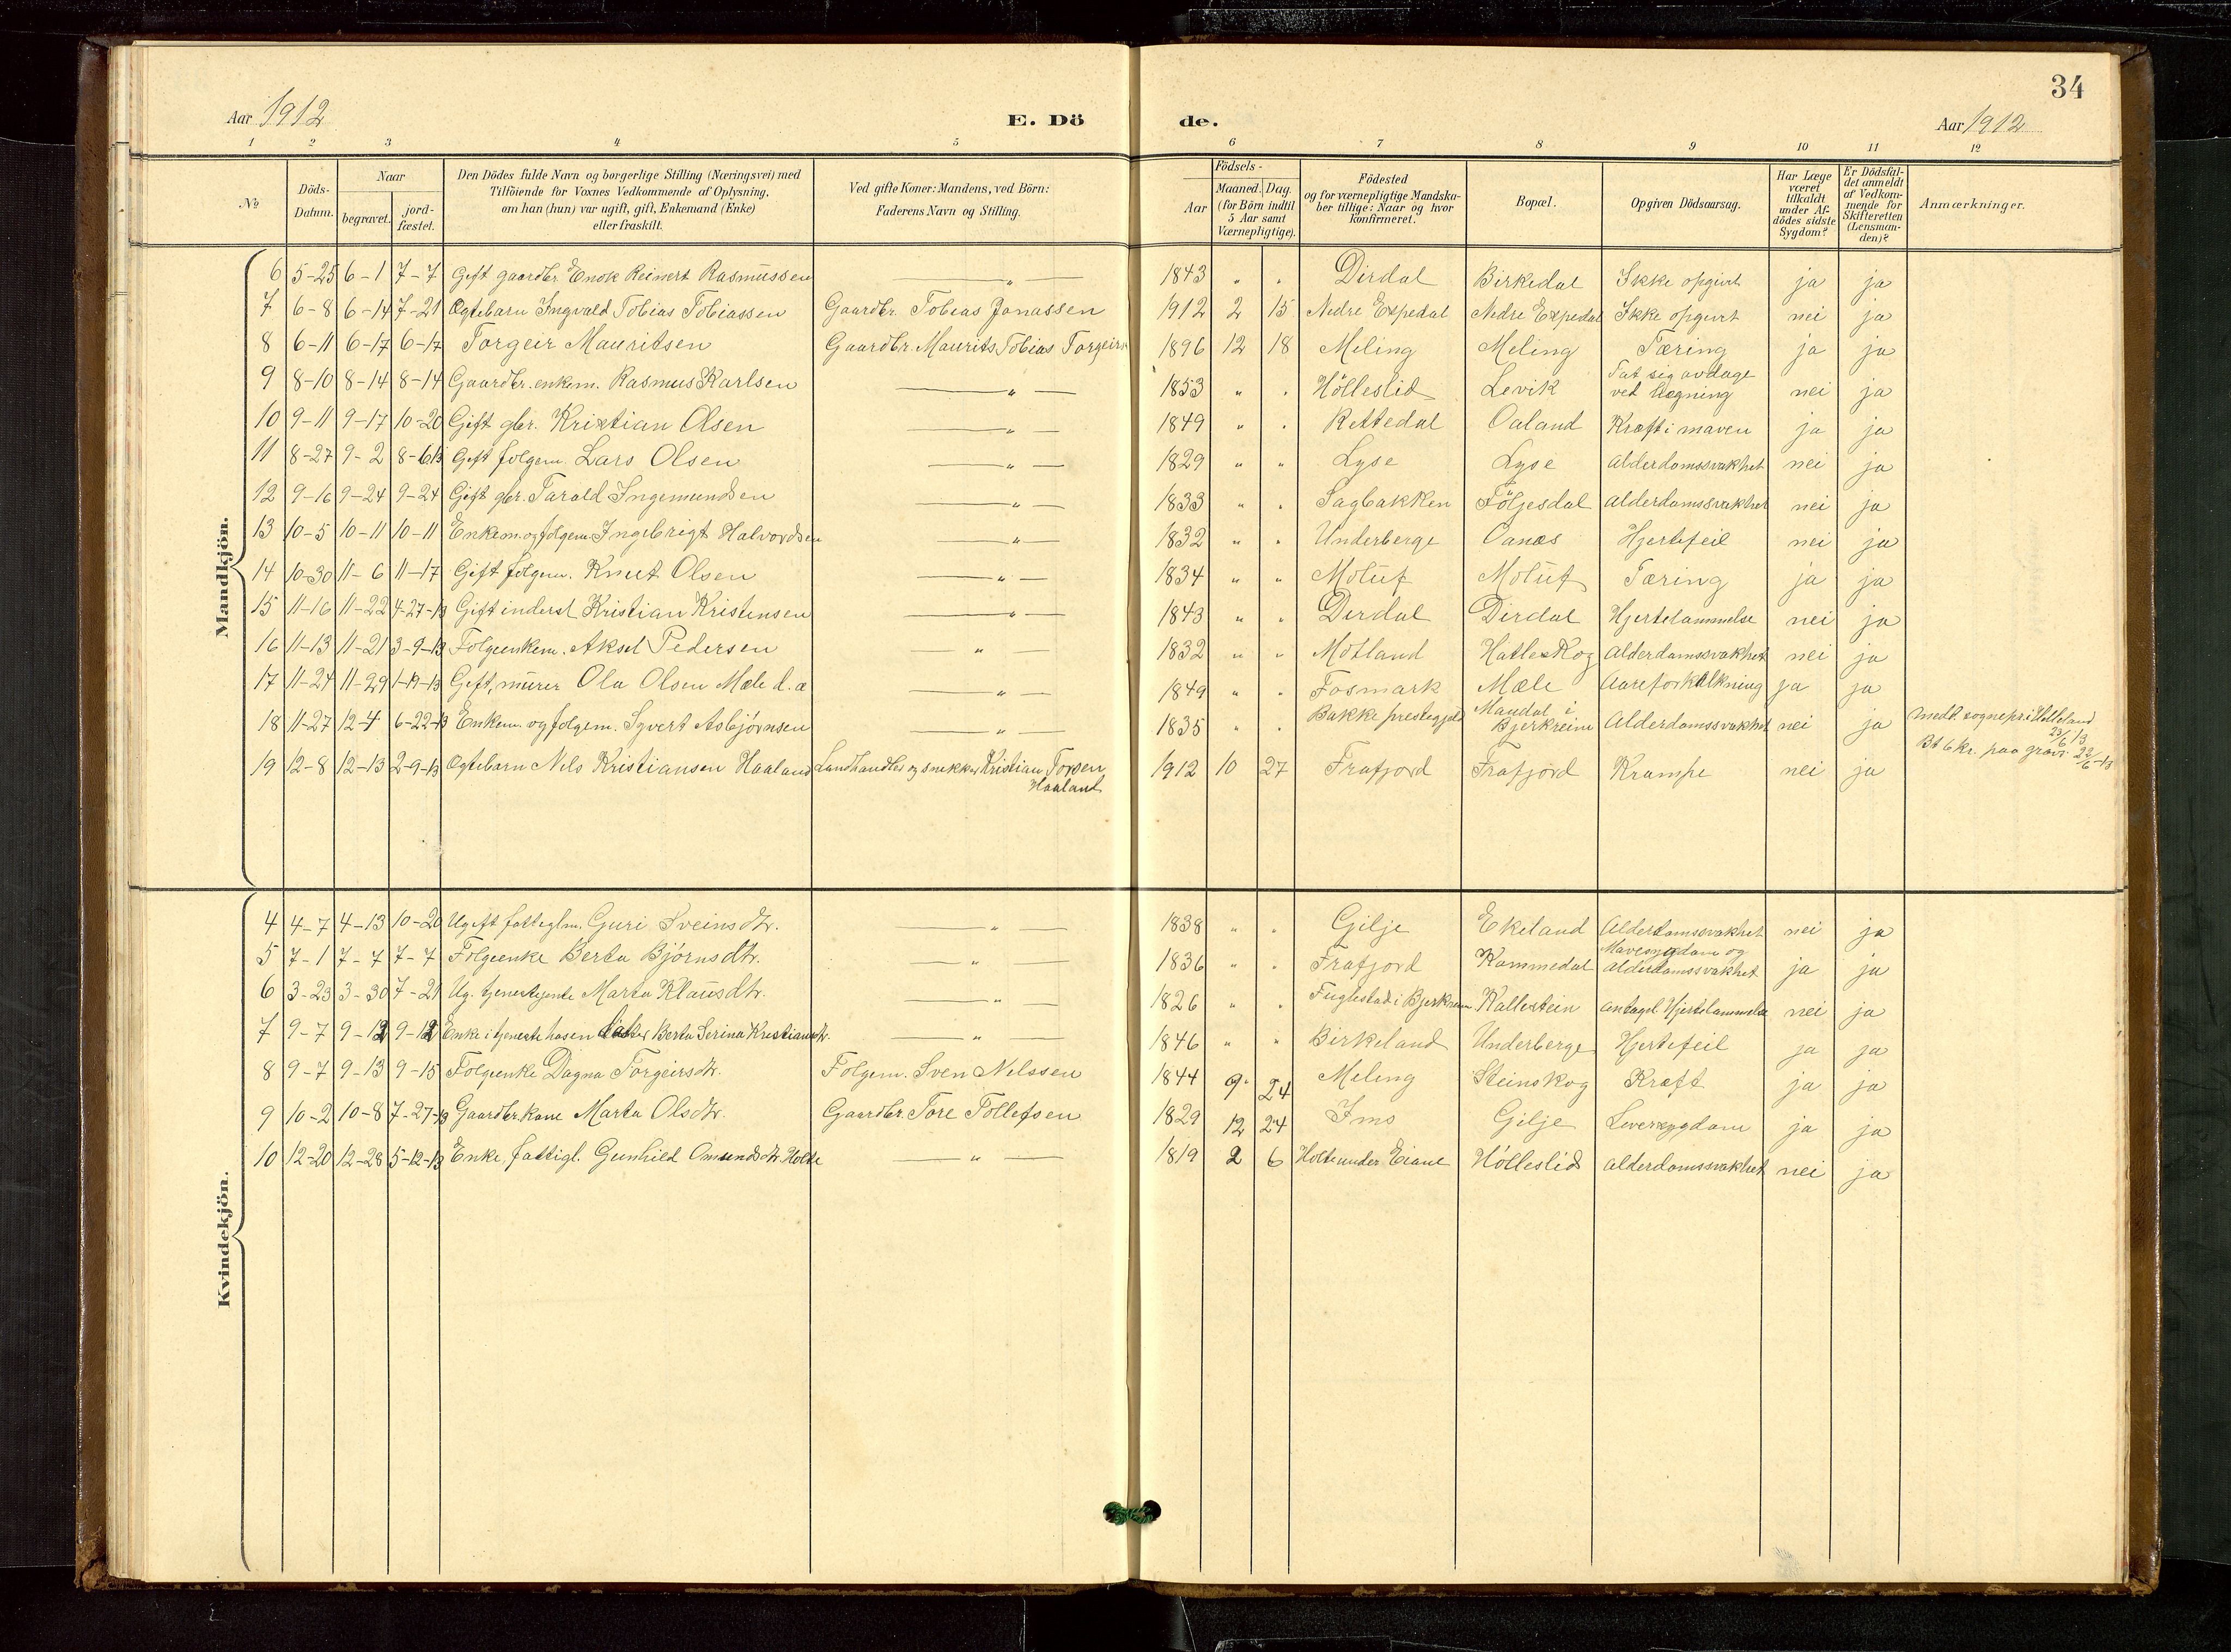 34
Aar 1912 E. Dö de. Aar 1912
1 2 3 4 5 6 7 8 9 10 11 12
No
Döds-Datum.
Naar
begravet.
jord-fæstet.
Den Dödes fulde Navn og borgerlige Stilling (Næringsvei) med
Tilföiende for Voxnes Vedkommende af Oplysning,
om han (hun) var ugift, gift, Enkemand (Enke)
eller fraskilt.
Ved gifte Koner: Mandens, ved Börn:
Faderens Navn og Stilling.
Födsels-
Aar
Maaned. Dag.
(for Börn indtil
5 Aar samt
Værnepligtige).
Födested
og for værnepligtige Mandska-
ber tillige: Naar og hvor
konfirmeret.
Bopæl.
Opgiven Dödsaarsag.
Har Læge
været
tilkaldt
under Af-
dödes sidste
Sygdom?
Er Dödsfal-
det anmeldt
af Vedkom-
mende for
Skifteretten
(Lensman-
den)?
Anmærkninger.
Mandkjön.
6 5-25 6-1 7-7 Gift gaardbr. Enok Reinert Rasmussen — " — 1843 " " Dirdal Birkedal Ikke opgivt ja ja
7 6-8 6-14 7-21 Ægtebarn Ingvald Tobias Tobiassen Gaardbr. Tobias Jonassen 1912 2 15 Nedre Espedal Nedre Espedal Ikke opgivt nei ja
8 6-11 6-17 6-17 Torgeir Mauritsen Gaardbr. Maurits Tobias Torgeirs 1896 12 18 Meling Meling Tæring ja ja
9 8-10 8-14 8-14 Gaardbr. enkem. Rasmus Karlsen — " — 1853 " " Hölleslid Levik Tat sig avdage
ved hægning nei ja
10 9-11 9-17 10-20 Gift gbr. Kristian Olsen — " — 1849 " " Rettedal Oaland Kræft i maven ja ja
11 8-27 9-2 8-6 13 Gift folgem. Lars Olsen — " — 1829 " " Lyse Lyse Alderdomssvakhet nei ja
12 9-16 9-24 9-24 Gift gbr. Tarald Ingemundsen — " — 1833 " " Sagbakken Följesdal Alderdomssvakhet nei ja
13 10-5 10-11 10-11 Enkem. og folgem. Ingebrigt Halvordsen — " — 1832 " " Underberge Oanæs Hjertefeil nei ja
14 10-30 11-6 11-17 Gift folgem. Knut Olsen — " — 1834 " " Motuf Motuf Tæring ja ja
15 11-16 11-22 4-27-13 Gift inderst Kristian Kristensen — " — 1843 " " Dirdal Dirdal Hjertelammelse nei ja
16 11-13 11-21 3-9-13 Folgeenkem. Aksel Pedersen — " — 1832 " " Motland Hatleskog Alderdomssvakhet nei ja
17 11-24 11-29 1-19-13 Gift, murer Ola Olsen Mæle d. æ — " — 1849 " " Fosmark Mæle Aareforkalkning ja ja
18 11-27 12-4 6-22-13 Enkem. og folgem. Syvert Asbjørnsen — " — 1835 " " Bakke prestegjeld Maudal i
Bjerkreim Alderdomssvakhet nei ja Medt. sognepr. i Helleland
23/6 13
Bt 6 kr. paa grav: 22/6-13
19 12-8 12-13 2-9-13 Ægtebarn Nils Kristiansen Haaland Landhandler og snekker Kristian Torsen
Haaland 1912 10 27 Frafjord Frafjord Krampe nei ja
Kvindekjön.
4 4-7 4-13 10-20 Ugift fattiglm. Guri Sveinsdtr. — " — 1838 " " Gilje Ekeland Alderdomssvakhet nei ja
5 7-1 7-7 7-7 Folgeenke Berta Bjørnsdtr. — " — 1836 " " Frafjord Kommedal Mavesygdom og
alderdomssvakhet ja ja
6 3-23 3-30 7-21 Ug. tjenestejente Marta Klausdtr. — " — 1826 " " Fuglestad i Bjerkreim Kallestein antagel. Hjertelammelse nei ja
7 9-7 9-12 9-12 Enke i tjeneste hos en datter Berta Serina Kristiansdtr. — " — 1846 " " Birkeland Underberge Hjertefeil ja ja
8 9-7 9-13 9-15 Folgeenke Dagna Torgeirsdtr. Folgem. Sven Nelssen 1844 9 24 Meling Steinskog Kræft ja ja
9 10-2 10-8 7-27-13 Gaardbr.kone Marta Olsdtr. Gaardbr. Tore Tollefsen 1829 12 24 Ims Gilje Leversygdom ja ja
10 12-20 12-28 5-12-13 Enke, fattigl. Gunhild Omundsdtr. Holte — " — 1819 2 6 Holte under Eiane Hölleslid alderdomssvakhet nei ja